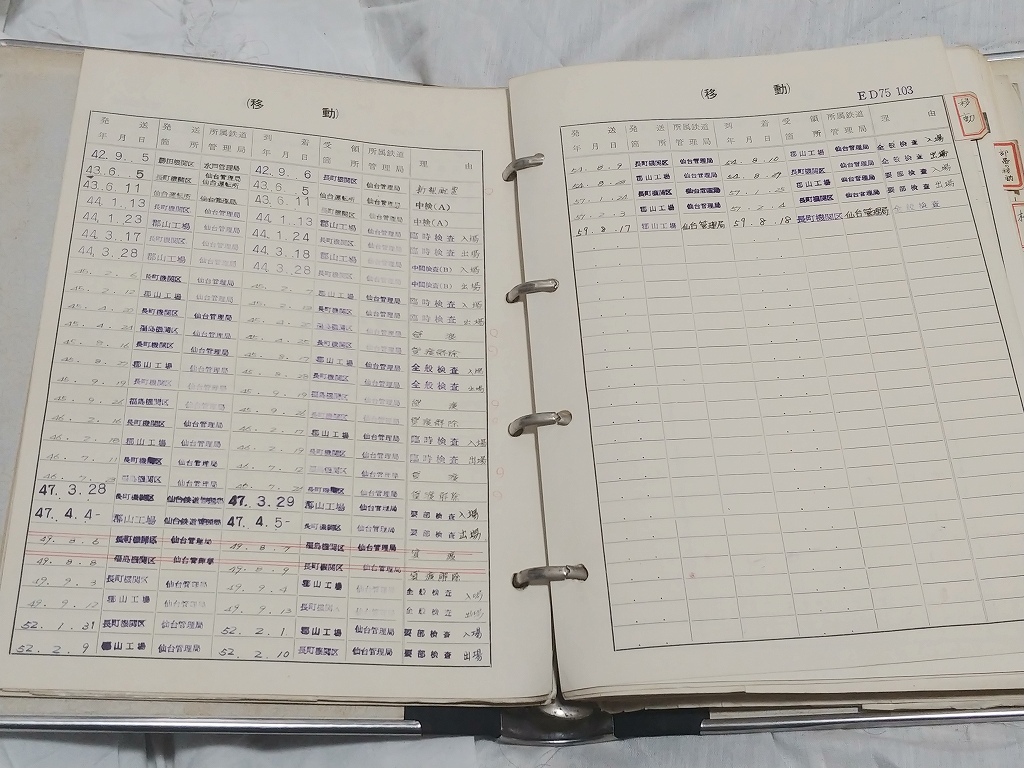 (移 動)
発 送 発 送 所属鉄道 到 着 受 領 所属鉄道 理 由
年 月 日 箇 所 管理局 年 月 日 箇 所 管理局
42.9.5 勝田機関区 水戸管理局 42.9.6 長町機関区 仙台管理局
43.6.5 長町機関区 仙台管理局 43.6.5 仙台運転所 仙台管理局 中検(A)
43.6.11 仙台運転所 仙台管理局 43.6.11 長町機関区 仙台管理局
44.1.13 長町機関区 仙台管理局 44.1.13 郡山工場 仙台管理局 臨時検査 入場
44.1.23 郡山工場 仙台管理局 44.1.24 長町機関区 仙台管理局 臨時検査 出場
44.3.17 長町機関区 仙台管理局 44.3.18 郡山工場 仙台管理局 中間検査(B) 入場
44.3.28 郡山工場 仙台管理局 44.3.28 長町機関区 仙台管理局 中間検査(B) 出場
45.2.6 長町機関区 仙台管理局 45.2.7 郡山工場 仙台管理局 臨時検査 入場
45.2.12 郡山工場 仙台管理局 長町機関区 仙台管理局 臨時検査 出場
長町機関区 仙台管理局 福島機関区 仙台管理局
45.4.24 福島機関区 仙台管理局 長町機関区 仙台管理局
45.8.16 長町機関区 仙台管理局 45.8.17 郡山工場 仙台管理局 全般検査 入場
郡山工場 仙台管理局 長町機関区 仙台管理局 全般検査 出場
45.9.19 長町機関区 仙台管理局 45.9.19 福島機関区 仙台管理局
福島機関区 仙台管理局 長町機関区 仙台管理局
46.2.16 長町機関区 仙台管理局 46.2.17 郡山工場 仙台管理局 臨時検査 入場
46.2.18 郡山工場 仙台管理局 46.2.19 長町機関区 仙台管理局 臨時検査 出場
46.7.11 長町機関区 仙台管理局 46.7.12 福島機関区 仙台管理局
長町機関区 仙台管理局
47.3.28 長町機関区 仙台鉄道管理局 47.3.29 郡山工場 仙台管理局 要部検査 入場
47.4.4 郡山工場 仙台鉄道管理局 47.4.5 長町機関区 仙台管理局 要部検査 出場
49.8.6 長町機関区 仙台管理局 49.8.7 福島機関区 仙台管理局
49.8.8 福島機関区 仙台管理局 49.8.9 長町機関区 仙台管理局
49.9.3 長町機関区 仙台管理局 49.9.4 郡山工場 仙台管理局 全般検査 入場
49.9.12 郡山工場 仙台管理局 49.9.13 長町機関区 仙台管理局 全般検査 出場
52.1.31 長町機関区 仙台管理局 52.2.1 郡山工場 仙台管理局 要部検査 入場
52.2.9 郡山工場 仙台管理局 52.2.10 長町機関区 仙台管理局 要部検査 出場
(移 動)
ED75 103
発 送 発 送 所属鉄道 到 着 受 領 所属鉄道 理 由
年 月 日 箇 所 管理局 年 月 日 箇 所 管理局
54.8.9 長町機関区 仙台管理局 54.8.10 郡山工場 仙台管理局 全般検査 入場
郡山工場 仙台管理局 長町機関区 仙台管理局 全般検査 出場
57.1.24 長町機関区 仙台管理局 57.1.25 郡山工場 仙台管理局 要部検査 入場
57.2.3 郡山工場 仙台管理局 57.2.4 長町機関区 仙台管理局 要部検査 出場
59.8.17 郡山工場 仙台管理局 59.8.18 長町機関区 仙台管理局 全般検査
移動